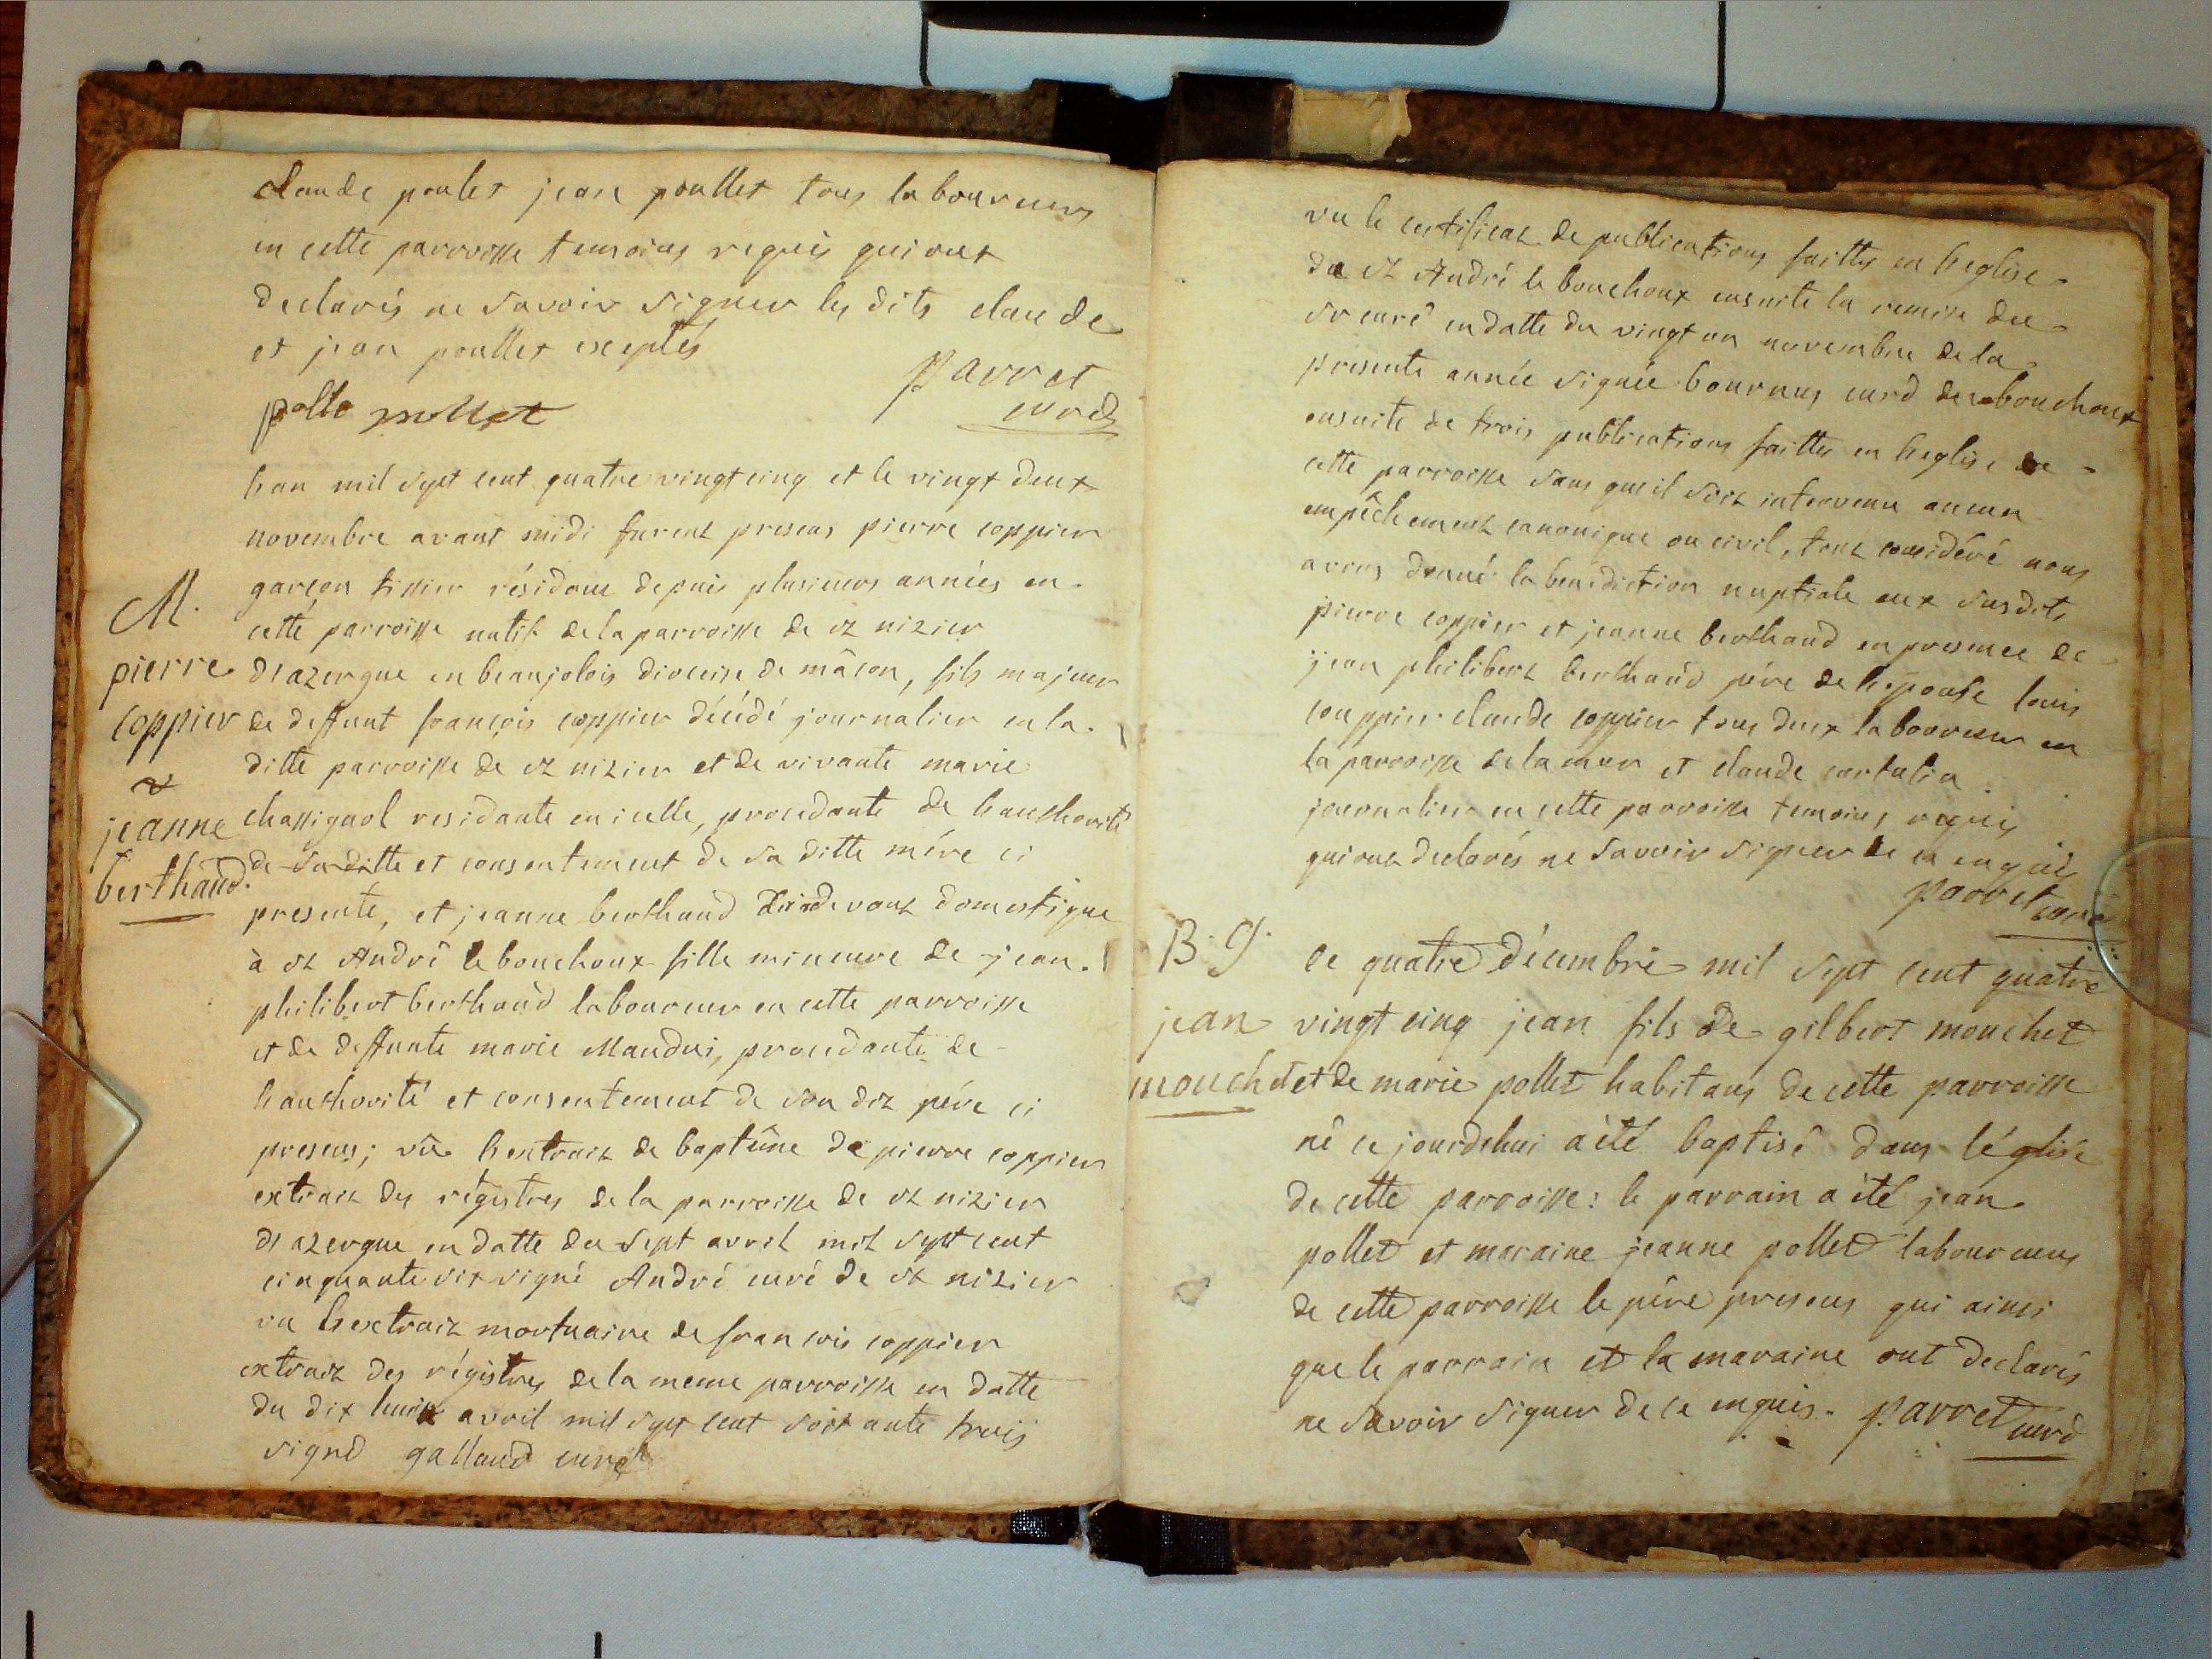 claude poulet jean poullet tous laboureurs
en cette parroisse temoins requis qui ont
declarés ne savoir signer les dits claude
et jean poullet exeptés
parret
curé
pollet
han mil sept cent quatre vingt cinq et le vingt deux
novembre avant midi furent presens pierre coppier
garçon tissier résidant depuis plusieurs années en
cette parroisse natif de la parroisse de st nizier
d'azergue en beaujolois diocese de mâcon, fils majeur
de deffunt françois coppier décédé journalier en la
ditte parroisse de st nizier et de vivante marie
chassignol residante en icelle, procedante de hauthorité
de sa ditte et consentement de sa ditte mére ci
presente, et jeanne berthaud cidevant domestique
à st André le bouchoux fille mineure de jean
philibert berthaud laboureur en cette parroisse
et de deffunte marie Mandui, procedante de
hauthorité et consentement de son dit pére ci
presens; vû hextrait de baptême de pierre coppier
extrait des régistres de la parroisse de st nizier
d'azergue en datte du sept avril mil sept cent
cinquante six signé André curé de st nizier
vu hextrait mortuaire de francois coppier
extrait des régistres de la meme parroisse en datte
du dix huit avril mil sept cent soixante trois
signé galland curé
M.
pierre
coppier
&
jeanne
berthaud.
vu le certificat de publications faittes en heglise
de st André le bouchoux ensuite la remise du
sr curé en datte du vingt un novembre de la
presente année signée bournus curé de bouchoux
ensuite de trois publications faittes en heglise de
cette parroisse sans qu'il soit intervenu aucun
empêchement canonique ou civil, tout considéré nous
avons donné la benediction nuptiale aux susdits
pierre coppier et jeanne berthaud en presence de
jean philibert berthaud pére de hepouse louis
couppier claude coppier tous deux laboureur en
la parroisse de la mur et claude
journalier en cette parroisse temoins requis
qui ont declarés ne savoir signer de ce enquis
parret curé
B. g.
jean
mouchet
le quatre décembre mil sept cent quatre
vingt cinq jean fils de gilbert mouchet
et de marie pollet habitans de cette parroisse
né ce jourdhui a été baptisé dans léglise
de cette parroisse: le parrain a été jean
pollet et maraine jeanne pollet laboureurs
de cette parroisse le pére presens qui ainsi
que le parrain et la maraine ont declarés
ne savoir signer de ce enquis. parret curé